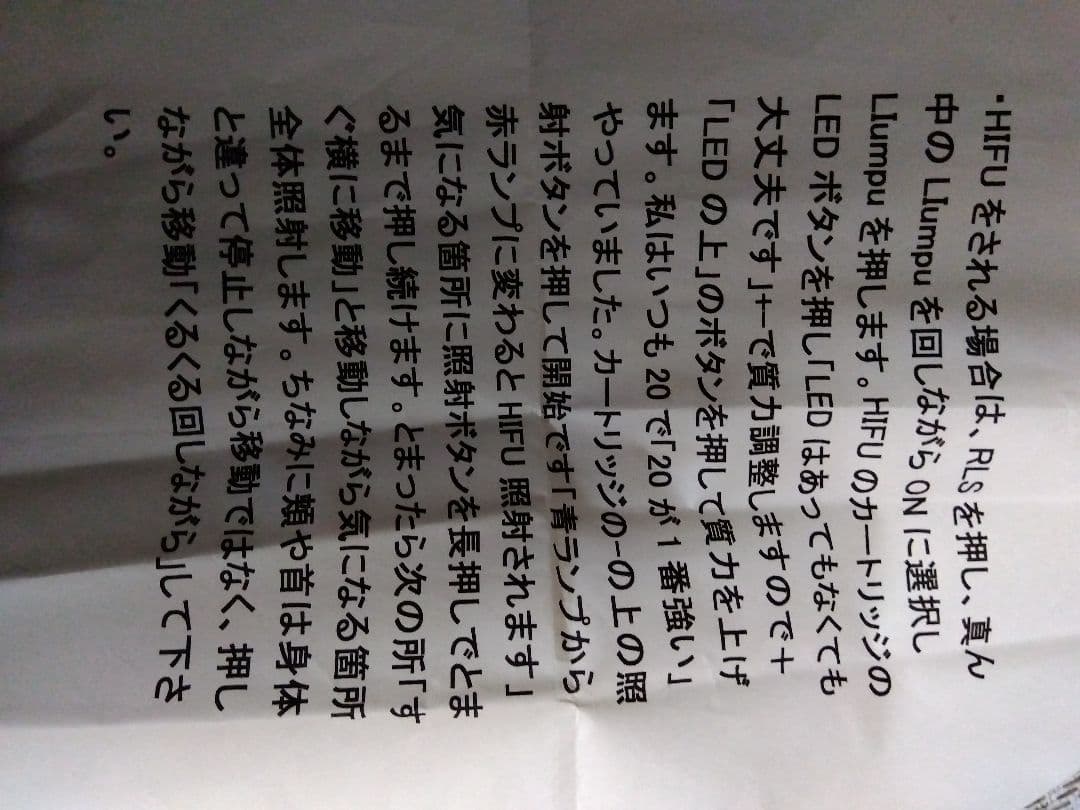 ・HIFU をされる場合は、RLS を押し、真ん
中の LIumpu を回しながら ON に選択し
LIumpu を押します。HIFU のカートリッジの
LED ボタンを押し「LED はあってもなくても
大丈夫です」+-で質力調整しますので＋
「LED の上」のボタンを押して質力を上げ
ます。私はいつも 20 で「20 が 1 番強い」
やっていました。カートリッジの-の上の照
射ボタンを押して開始です「青ランプから
赤ランプに変わると HIFU 照射されます」
気になる箇所に照射ボタンを長押しでとま
るまで押し続けます。とまったら次の所「す
ぐ横に移動」と移動しながら気になる箇所
全体照射します。ちなみに頬や首は身体
と違って停止しながら移動ではなく、押し
ながら移動「くるくる回しながら」して下さ
い。